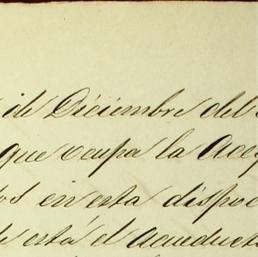 de Diciembre del
que ocupa la Aceq
os en esta dispoc
está el acueducto